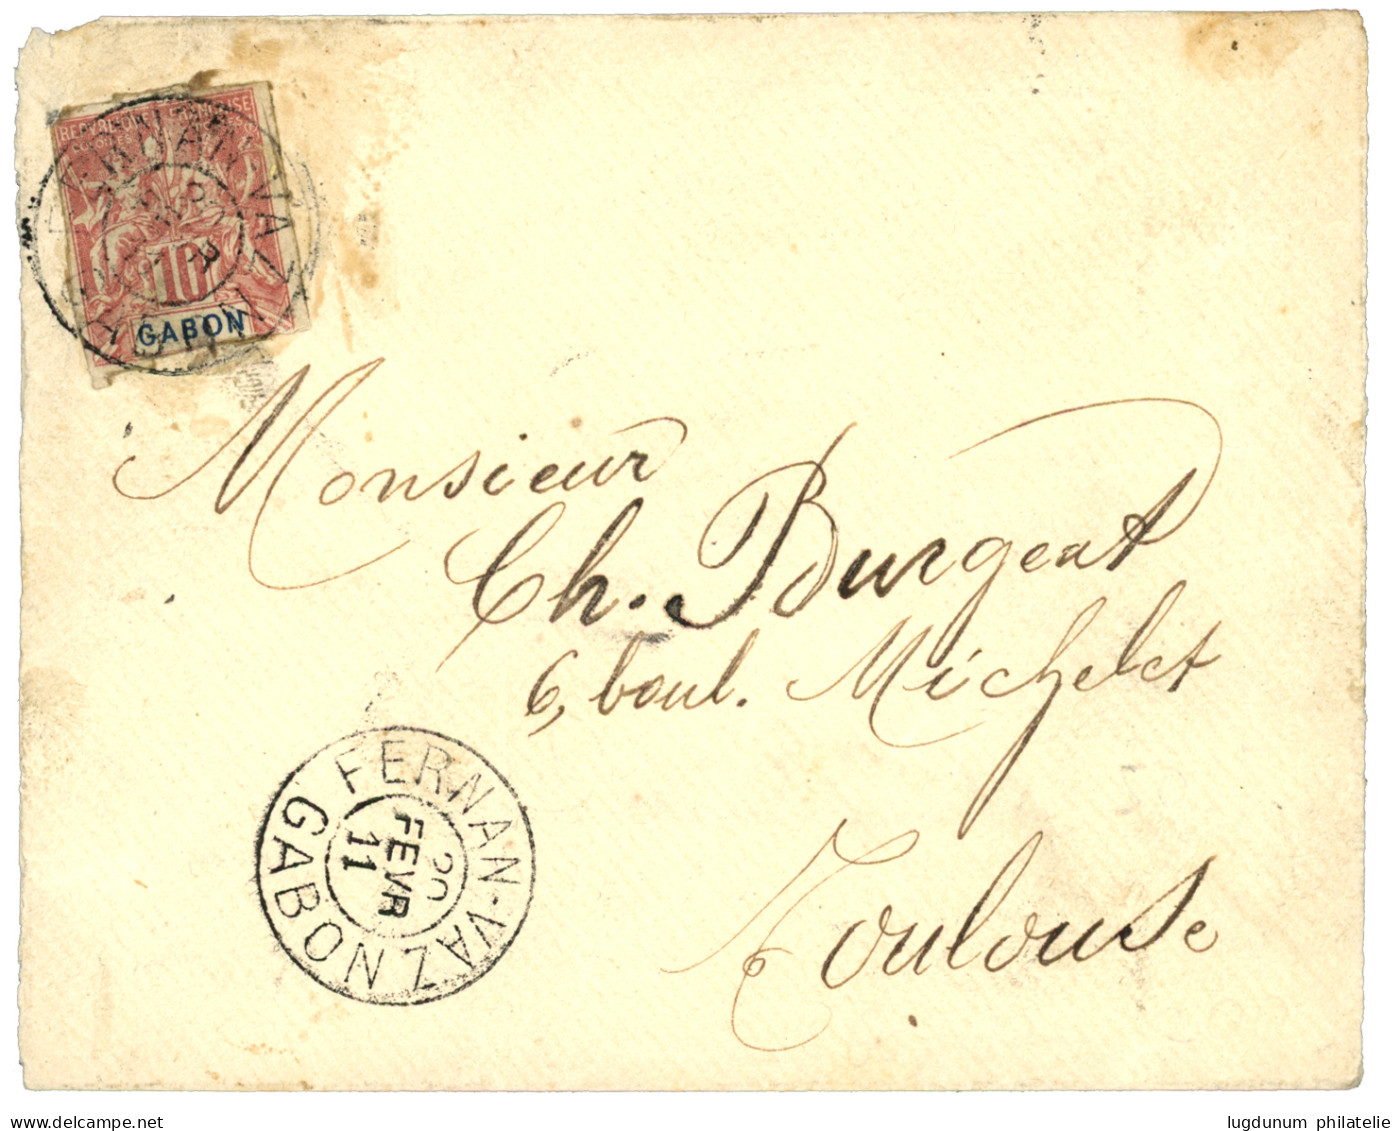 REPUBLIQUE FRANCAISE
COLONIES
10
GABON
FERNAN-VAZ
Monsieur
Ch. Burgeat
6, boul. Michelet
Toulouse
FERNAN-VAZ
20
FEVR
11
GABON
www.delcampe.net
lugdunum philatelie